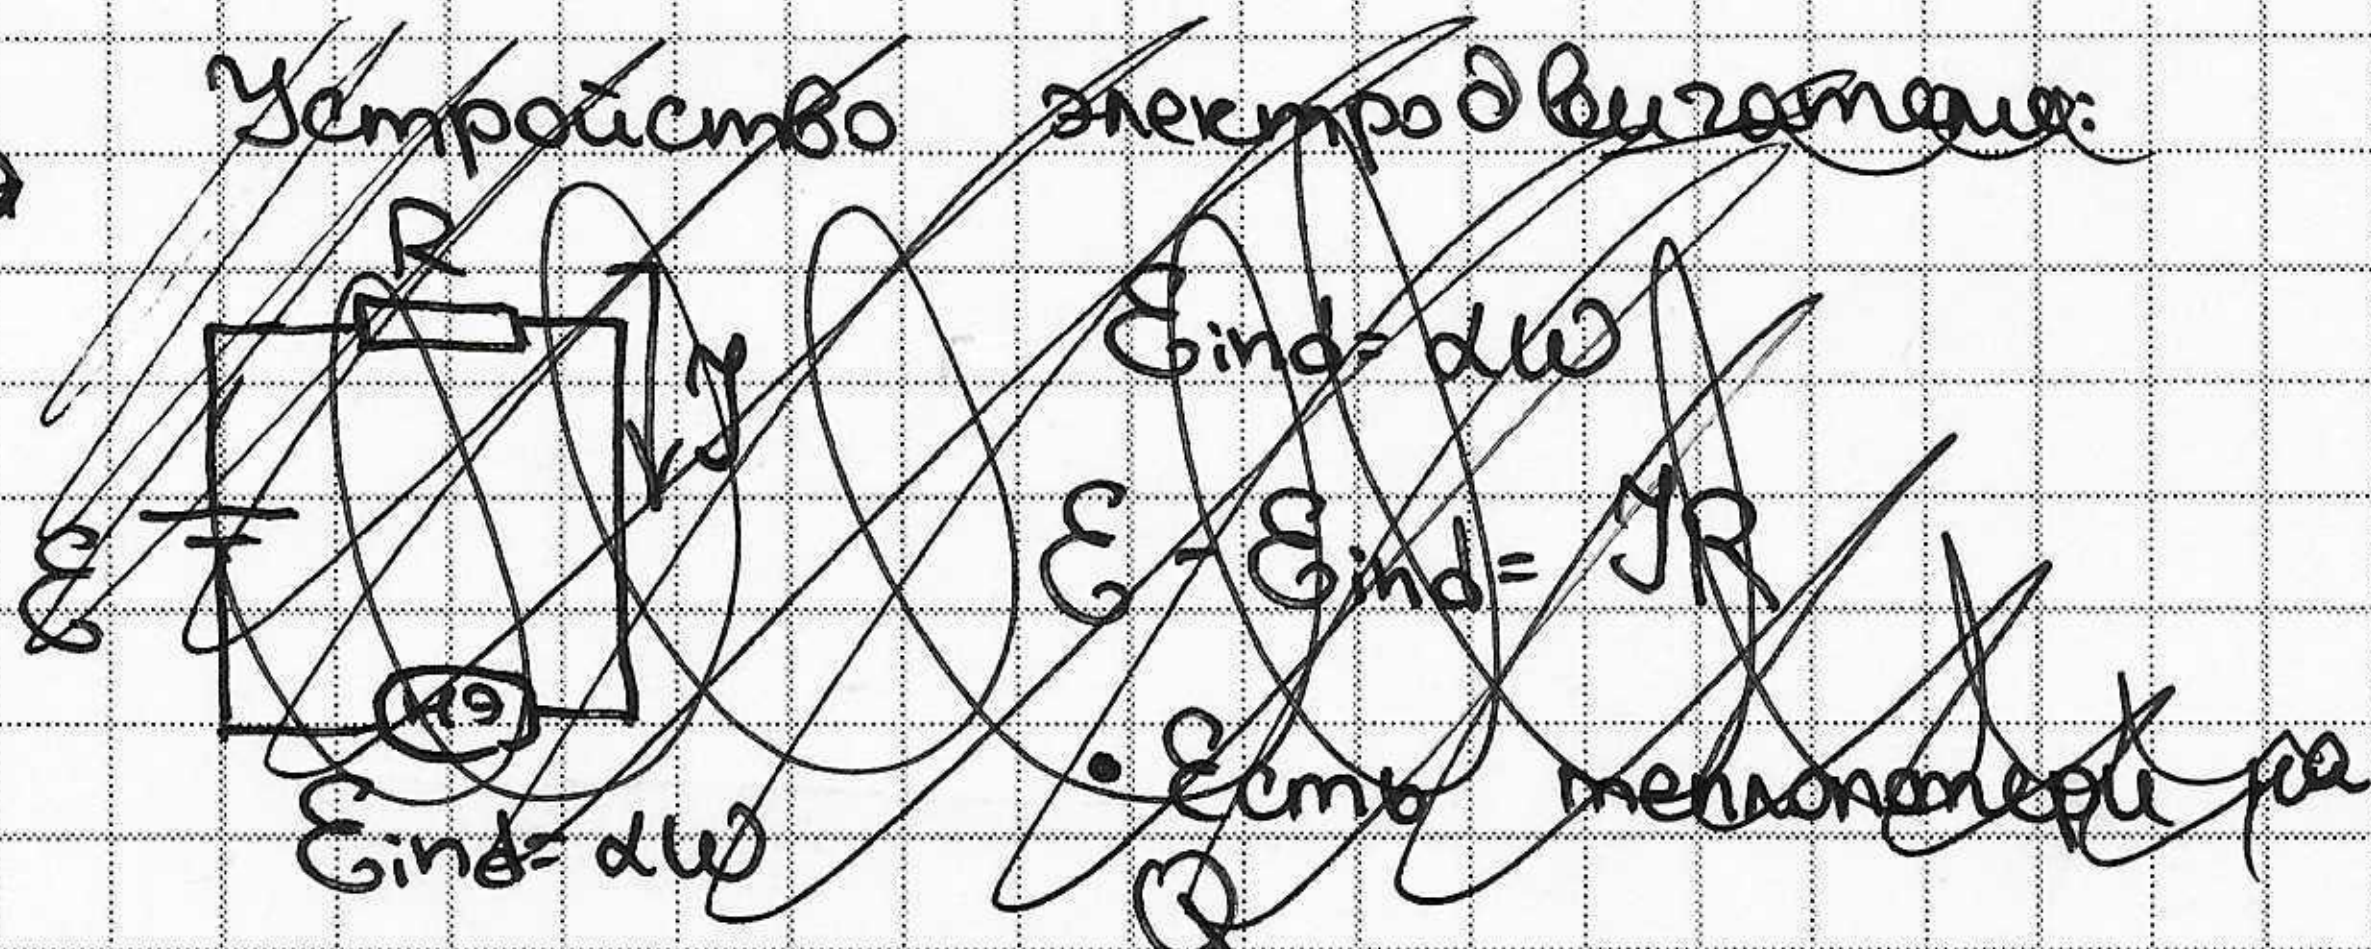 Устройство электродвигателя:
R
J
Eind = αω
ℰ
ℰ - Eind = JR
Eind = αω
• Есть теплопотери на
Q